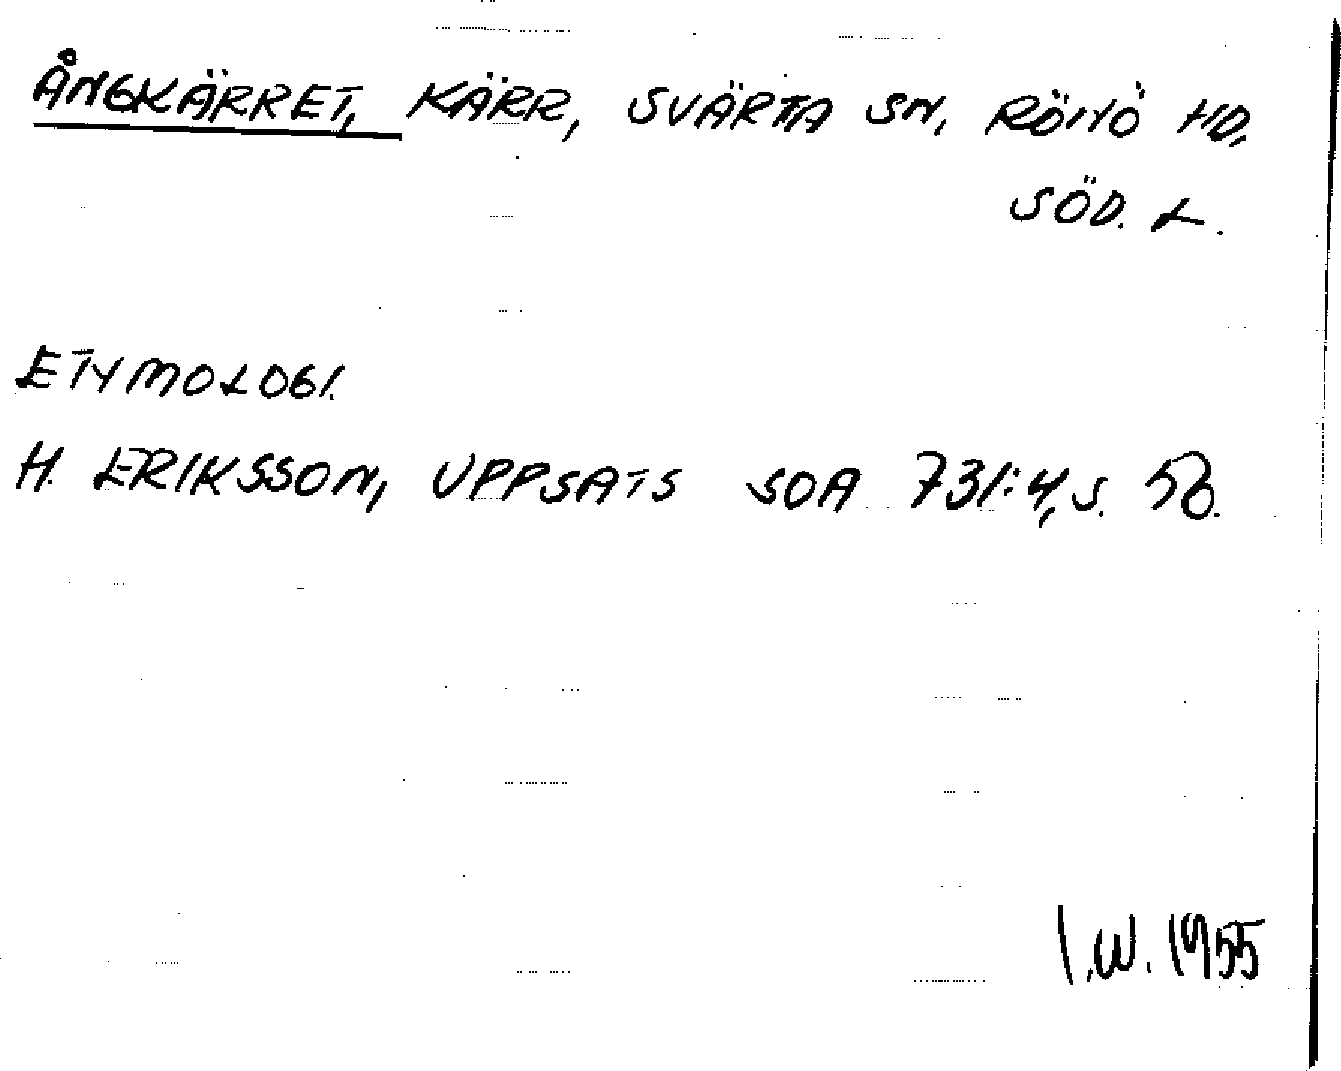 ÅNGKÄRRET, KÄRR, SVÄRTA SN, RÖNÖ HD,
SÖD. L.
ETYMOLOGI.
H. ERIKSSON, UPPSATS SOA 731:4, S. 58.
I.W. 1955